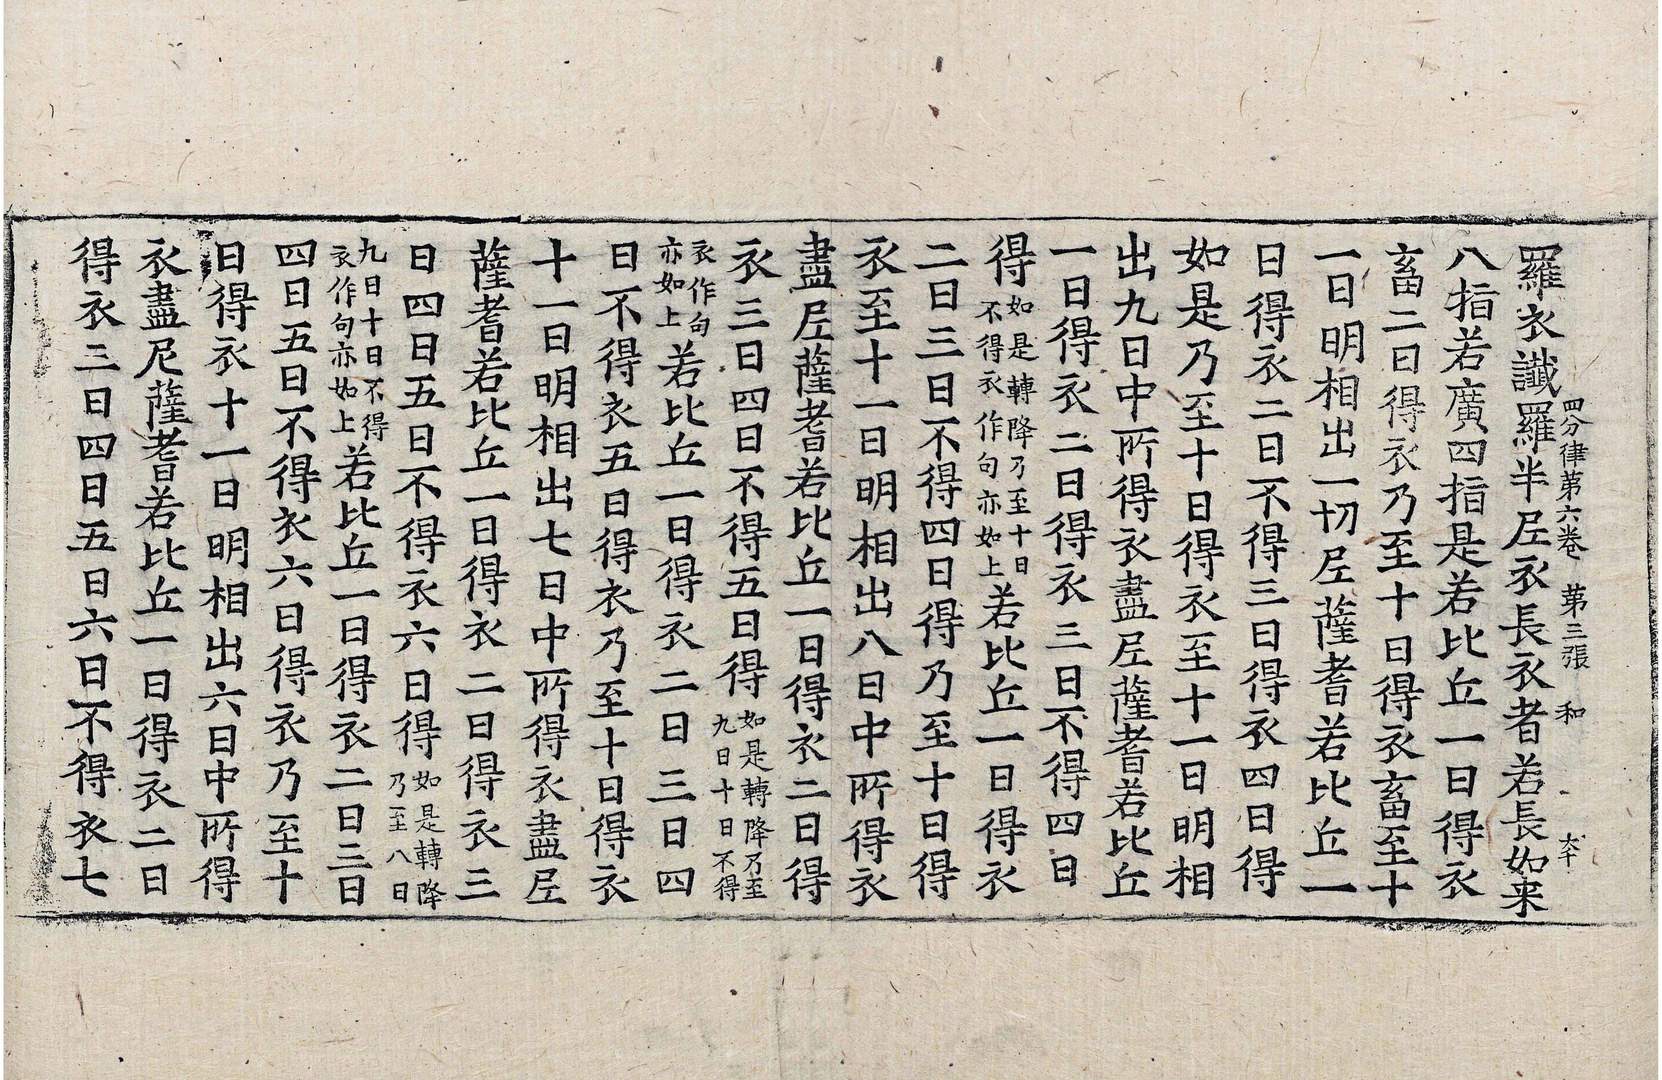 四分律第六卷 第三張 和
羅衣讖羅半尼衣長衣者若長如来
八指若廣四指是若比丘一日得衣
畜二日得衣乃至十日得衣畜至十
一日明相出一切尼薩耆若比丘一
日得衣二日不得三日得衣四日得
如是乃至十日得衣至十一日明相
出九日中所得衣盡尼薩耆若比丘
一日得衣二日得衣三日不得四日
得如是轉降乃至十日不得衣作句亦如上若比丘一日得衣
二日三日不得四日得乃至十日得
衣至十一日明相出八日中所得衣
盡尼薩耆若比丘一日得衣二日得
衣三日四日不得五日得如是轉降乃至九日十日不得
衣作句亦如上若比丘一日得衣二日三日四
日不得衣五日得衣乃至十日得衣
十一日明相出七日中所得衣盡尼
薩耆若比丘一日得衣二日得衣三
日四日五日不得衣六日得如是轉降乃至八日
九日十日不得衣作句亦如上若比丘一日得衣二日三日
四日五日不得衣六日得衣乃至十
日得衣十一日明相出六日中所得
衣盡尼薩耆若比丘一日得衣二日
得衣三日四日五日六日不得衣七